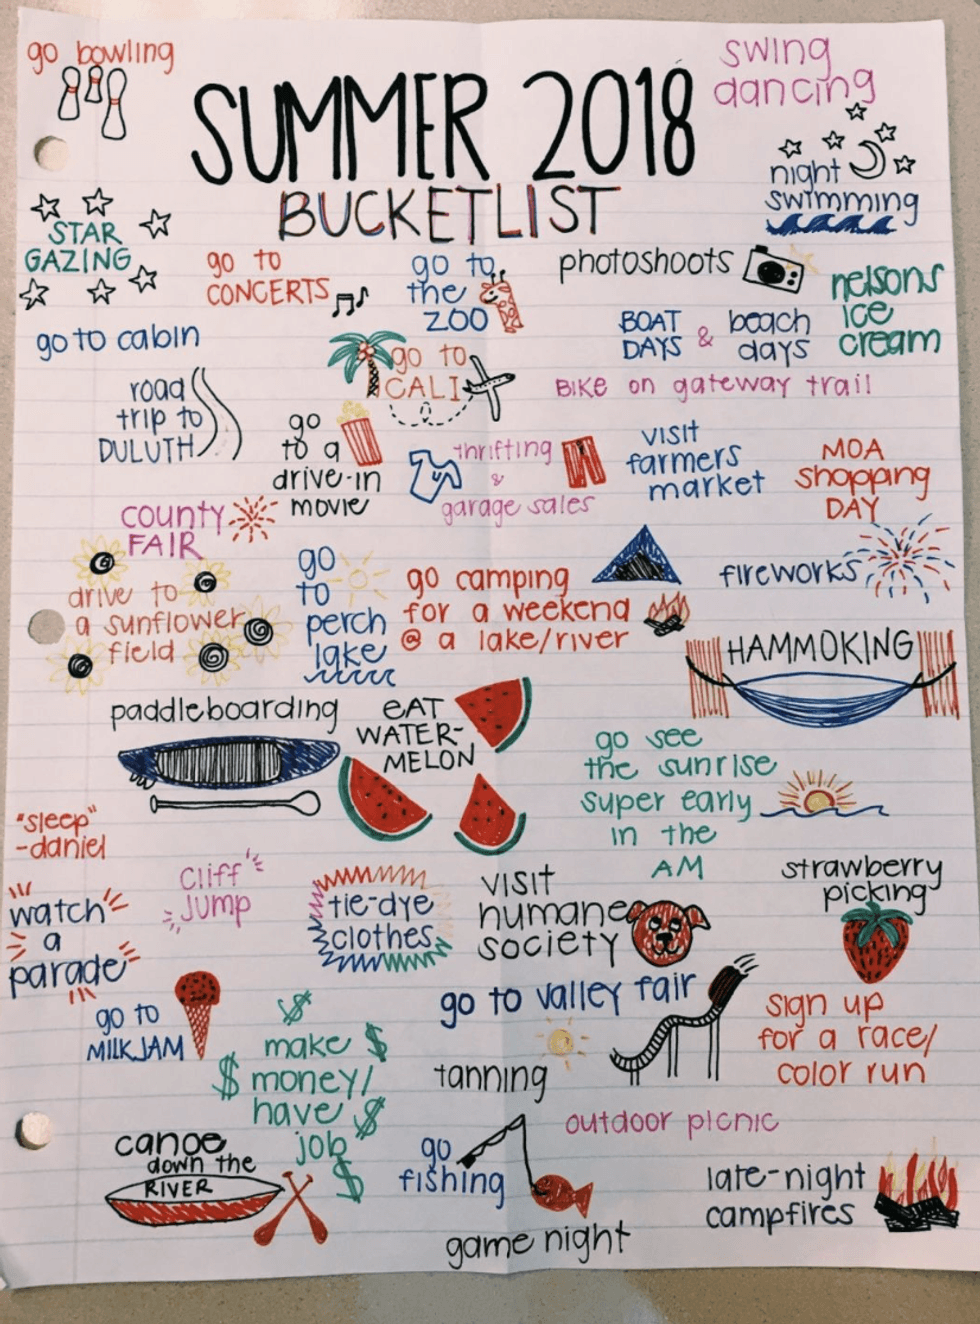 go bowling
SUMMER 2018
BUCKETLIST
swing
dancing
night
swimming
STAR
GAZING
go to
CONCERTS
go to
the
ZOO
photoshoots
nelsons
ICE
cream
go to cabin
BOAT
DAYS
&
beach
days
go to
CALI
BIKE on gateway trail
road
trip to
DULUTH
go
to a
drive-in
movie
thrifting
&
garage sales
VISIT
farmers
market
MOA
shopping
DAY
county
FAIR
go
TO
perch
lake
go camping
for a weekend
@ a lake/river
fireworks
drive to
a sunflower
field
HAMMOKING
paddleboarding
EAT
WATER-
MELON
go see
the sunrise
super early
in the
AM
"sleep"
-daniel
cliff
Jump
tie-dye
clothes
VISIT
humane
society
strawberry
picking
watch
a
parade
go to
MILKJAM
make
money/
have
job
$
$
$
$
$
go to valley fair
tanning
sign up
for a race/
color run
outdoor picnic
canoe
down the
RIVER
go
fishing
late-night
campfires
game night